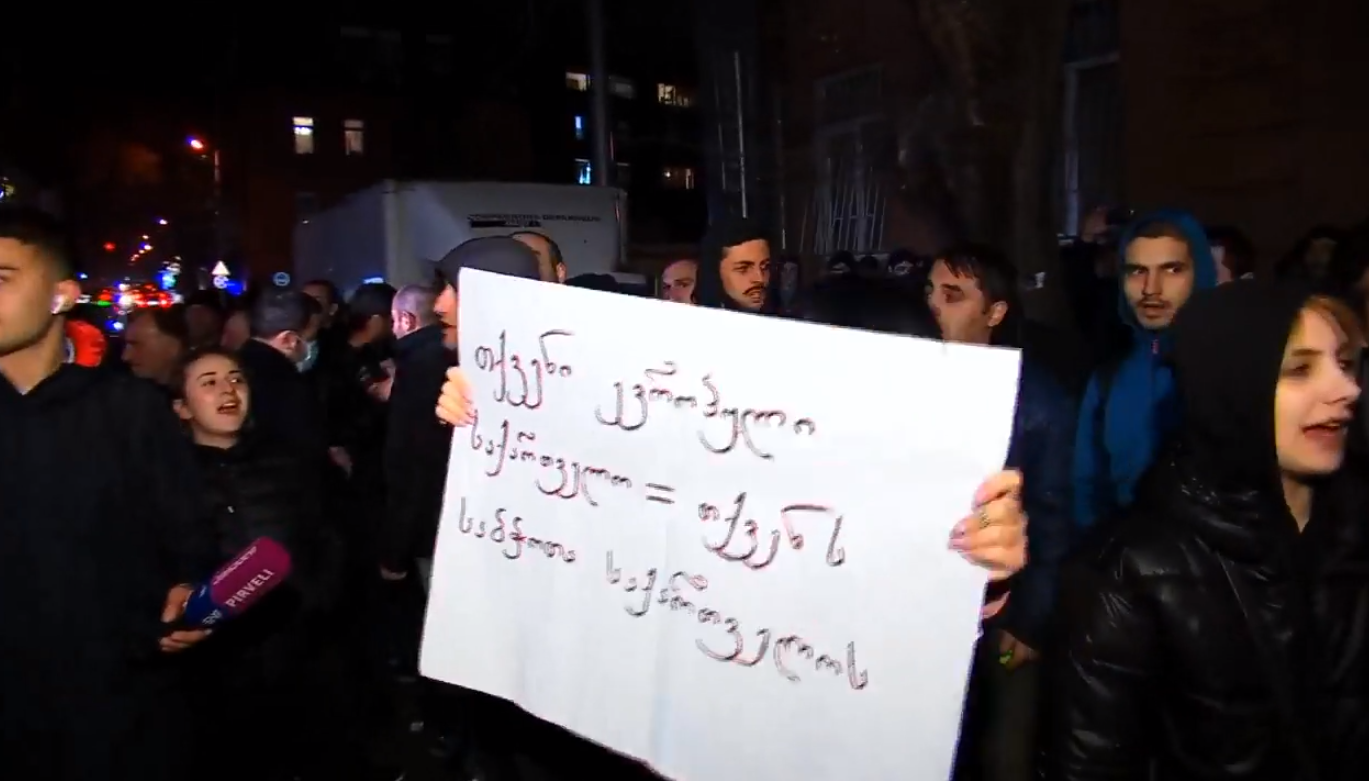 თქვენი ევროპული
საქართველო = თქვენს
საბჭოთა საქართველოს
PIRVELI